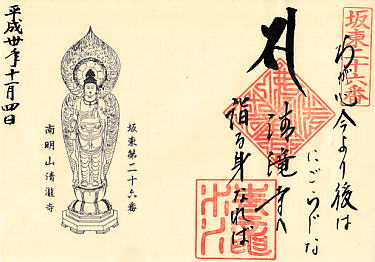 坂東二十六番
わが心今より後は
にごらじな
清滝寺へ
詣る身なれば
坂東第二十六番
南明山清瀧寺
平成卅年十月四日